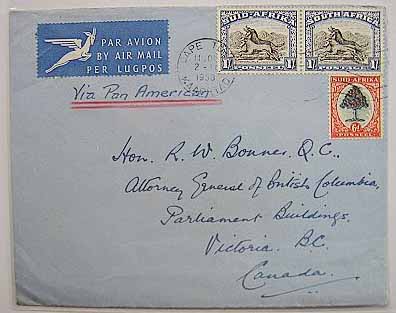 PAR AVION
BY AIR MAIL
PER LUGPOS
Via Pan American
CAPE
SUID-AFRIKA
1/-
POSSEËL
1/-
SOUTH AFRICA
1/-
POSTAGE
1/-
SUID-AFRIKA
6D
POSSEËL
Hon. R. W. Bonner, Q.C.,
Attorney General of British Columbia,
Parliament Buildings,
Victoria, B.C.
Canada.